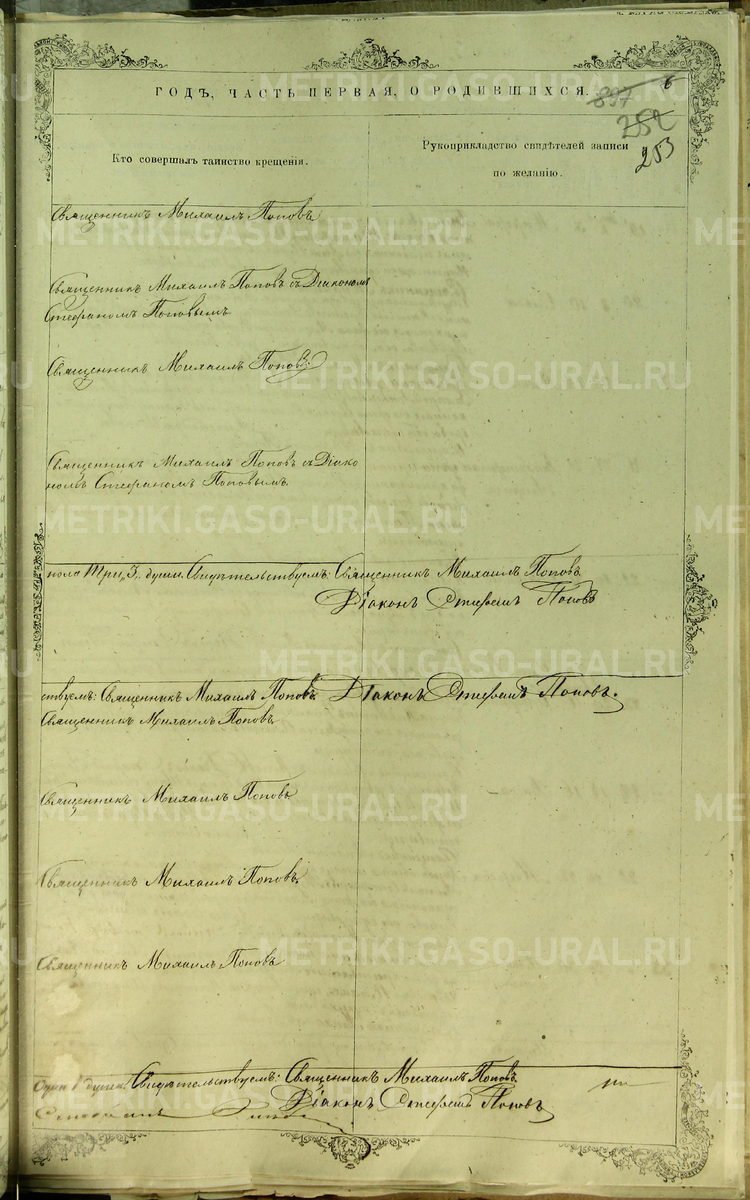 ГОДЪ, ЧАСТЬ ПЕРВАЯ, О РОДИВШИХСЯ.
897 6
252
253
Кто совершалъ таинство крещенія.
Рукоприкладство свидѣтелей записи
по желанію.
Священникъ Михаилъ Поповъ
Священникъ Михаилъ Поповъ съ Діакономъ
Стефаномъ Поповымъ
Священникъ Михаилъ Поповъ
Священникъ Михаилъ Поповъ съ Діако
номъ Стефаномъ Поповымъ.
пола Три, 3, души. Свидѣтельствуемъ: Священникъ Михаилъ Поповъ
Діаконъ Стефанъ Поповъ
ствуемъ: Священникъ Михаилъ Поповъ. Діаконъ Стефанъ Поповъ.
Священникъ Михаилъ Поповъ
Священникъ Михаилъ Поповъ
Священникъ Михаилъ Поповъ
Священникъ Михаилъ Поповъ
души. Свидѣтельствуемъ: Священникъ Михаилъ Поповъ
Діаконъ Стефанъ Поповъ
METRIKI.GASO-URAL.RU